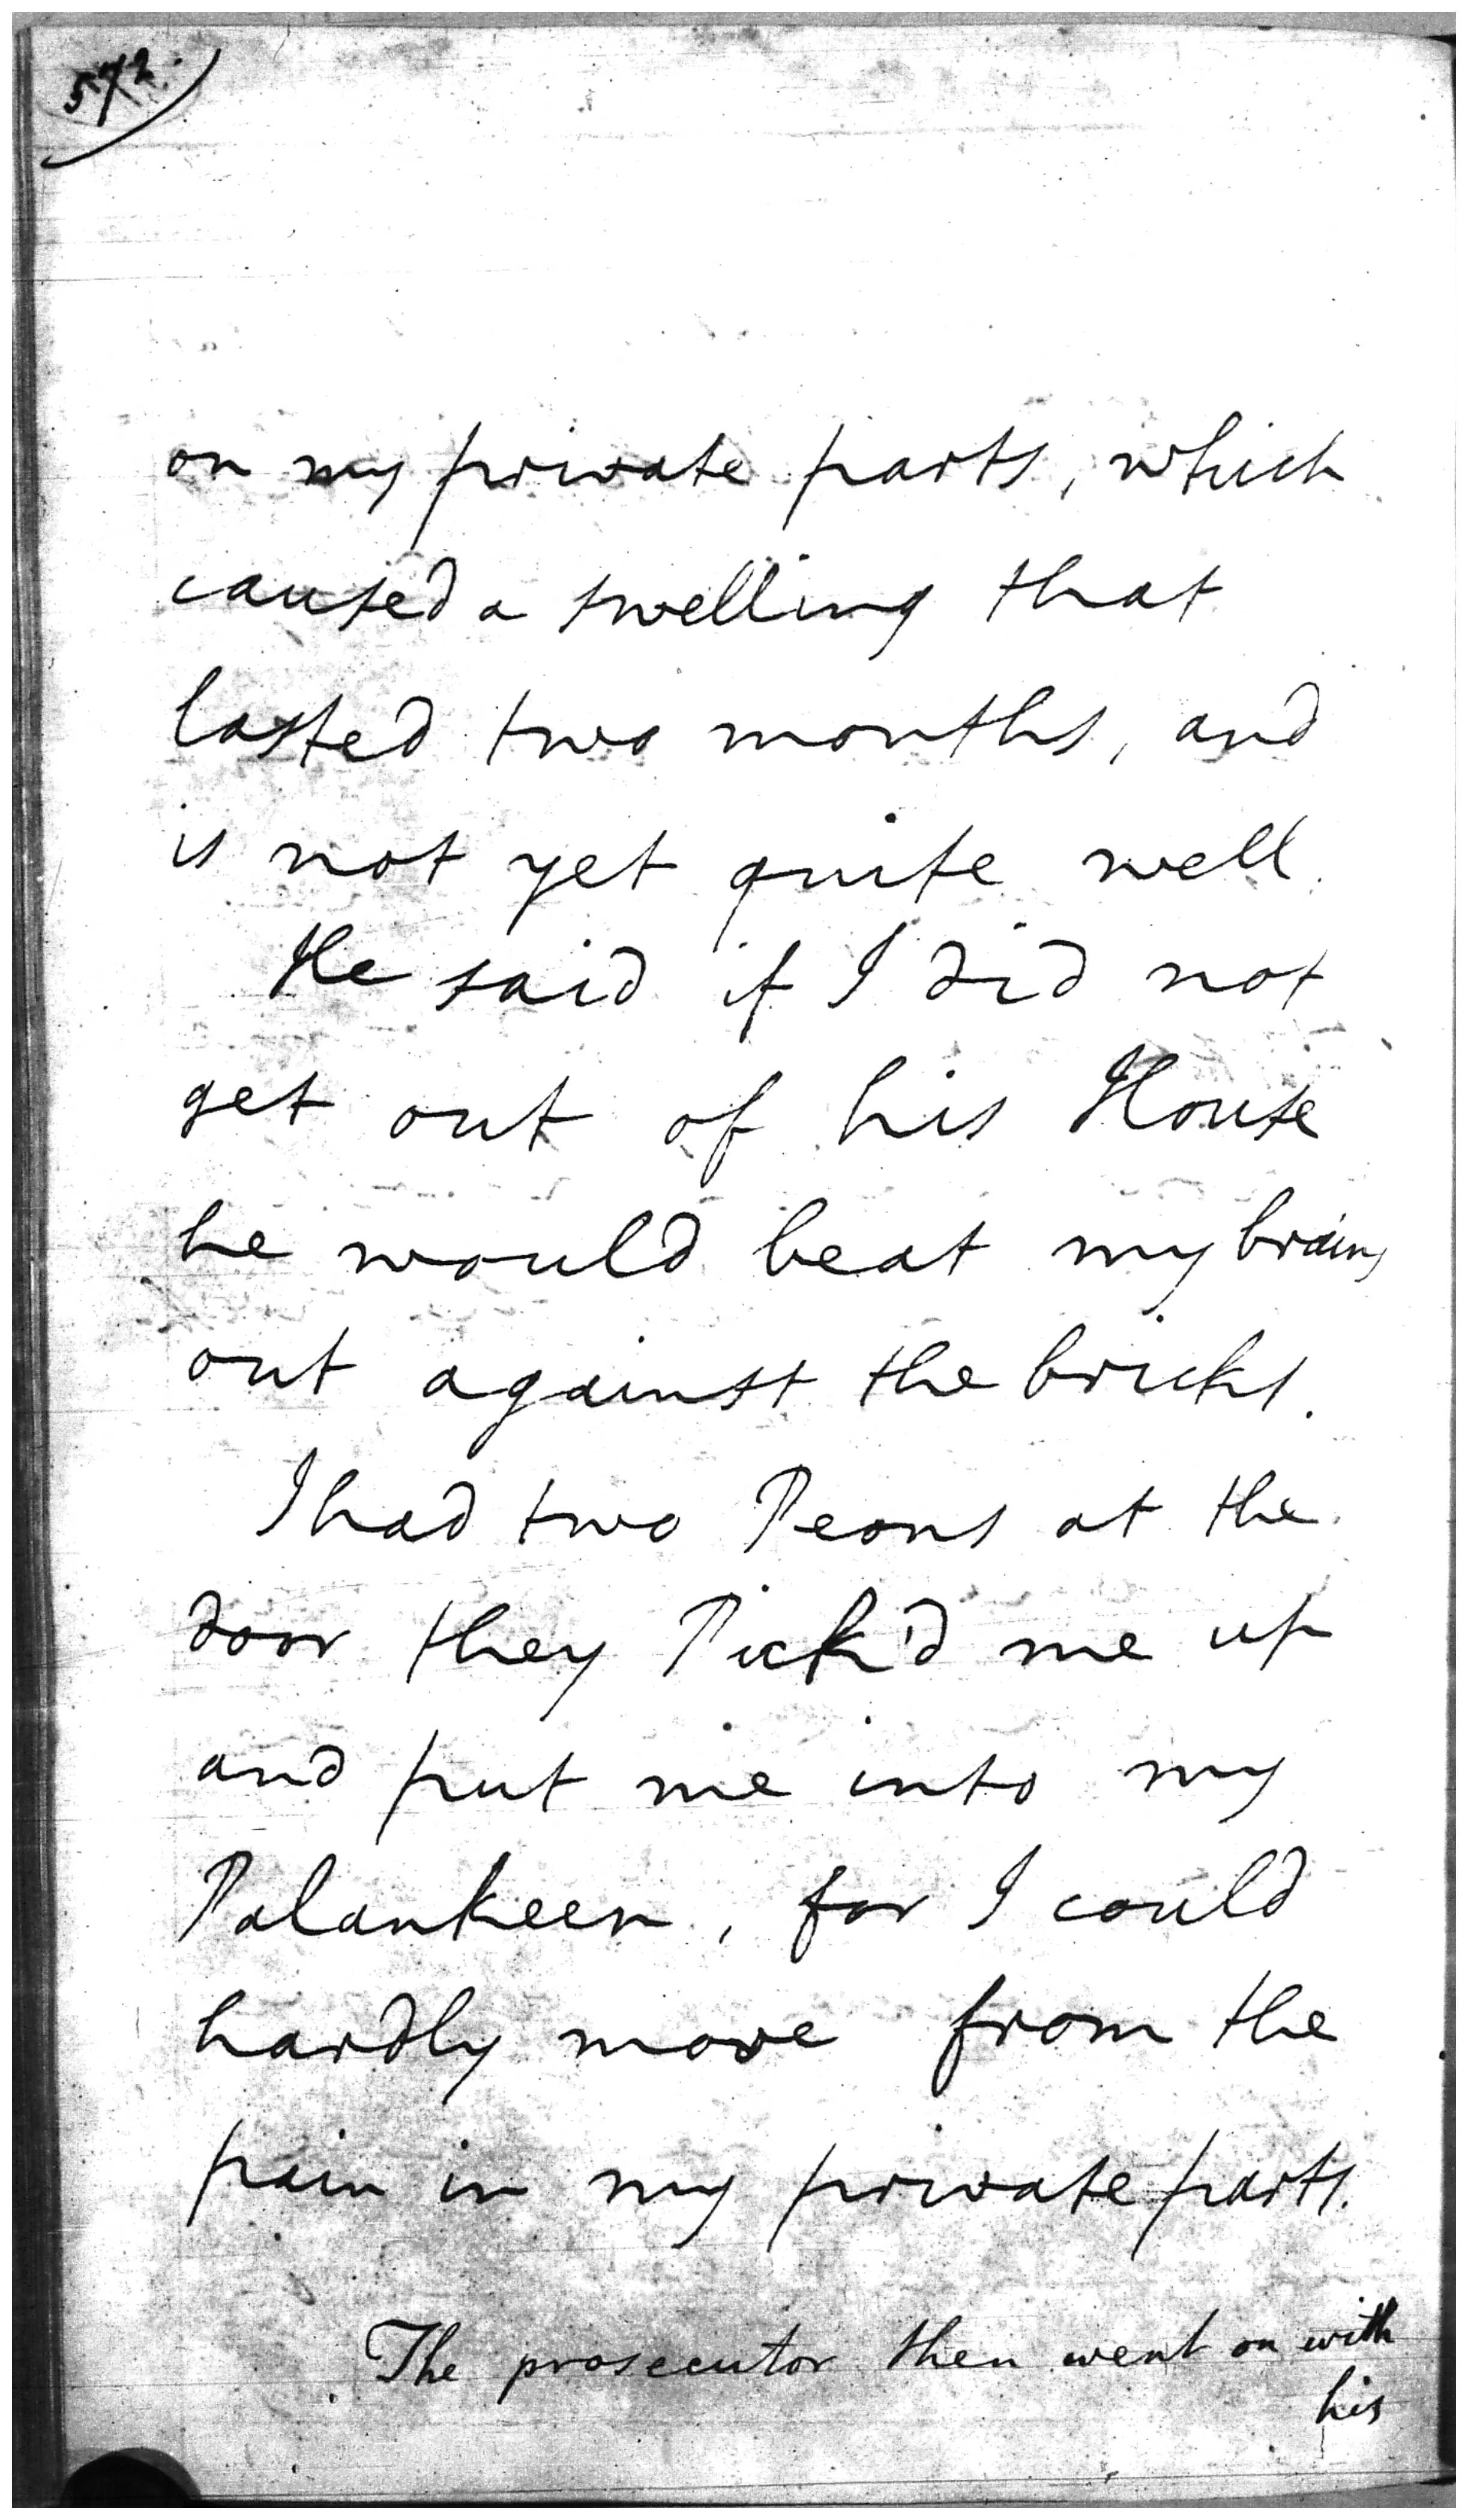 572.
on my private parts, which
caused a swelling that
lasted two months, and
is not yet quite well.
He said if I did not
get out of his House
he would beat my brains
out against the bricks.
I had two Peons at the
door they Pick'd me up
and put me into my
Palankeen, for I could
hardly move from the
pain in my private parts.
The prosecutor then went on with
his